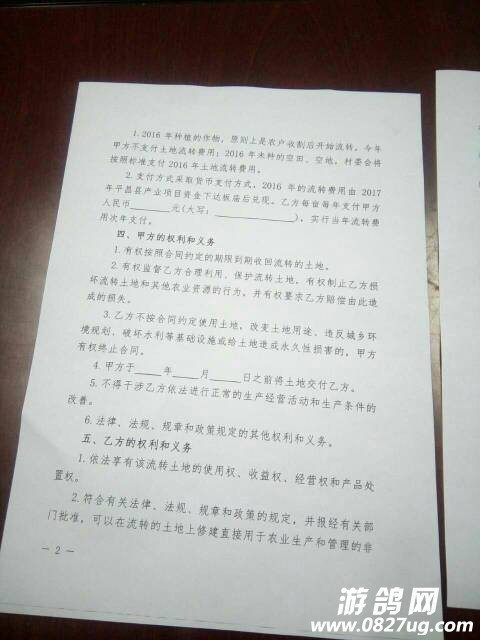 1.2016 年种植的作物，原则上是农户收割后开始流转，今年
甲方不支付土地流转费用；2016 年未种的空田、空地，村委会将
按照标准支付 2016 年土地流转费用。
2.支付方式采取货币支付方式。2016 年的流转费用由 2017
年平昌县产业项目资金下达板庙后兑现。乙方每亩每年支付甲方
人民币______元(大写：____________)。实行当年流转费
用次年支付。
四、甲方的权利和义务
1.有权按照合同约定的期限到期收回流转的土地。
2.有权监督乙方合理利用、保护流转土地，有权制止乙方损
坏流转土地和其他农业资源的行为，并有权要求乙方赔偿由此造
成的损失。
3.乙方不按合同约定使用土地，改变土地用途、违反城乡环
境规划、破坏水利等基础设施或给土地造成永久性损害的，甲方
有权终止合同。
4.甲方于____年____月____日之前将土地交付乙方。
5.不得干涉乙方依法进行正常的生产经营活动和生产条件的
改善。
6.法律、法规、规章和政策规定的其他权利和义务。
五、乙方的权利和义务
1.依法享有该流转土地的使用权、收益权、经营权和产品处
置权。
2.符合有关法律、法规、规章和政策的规定，并报经有关部
门批准，可以在流转的土地上修建直接用于农业生产和管理的非
— 2 —
游鸽网
www.0827ug.com